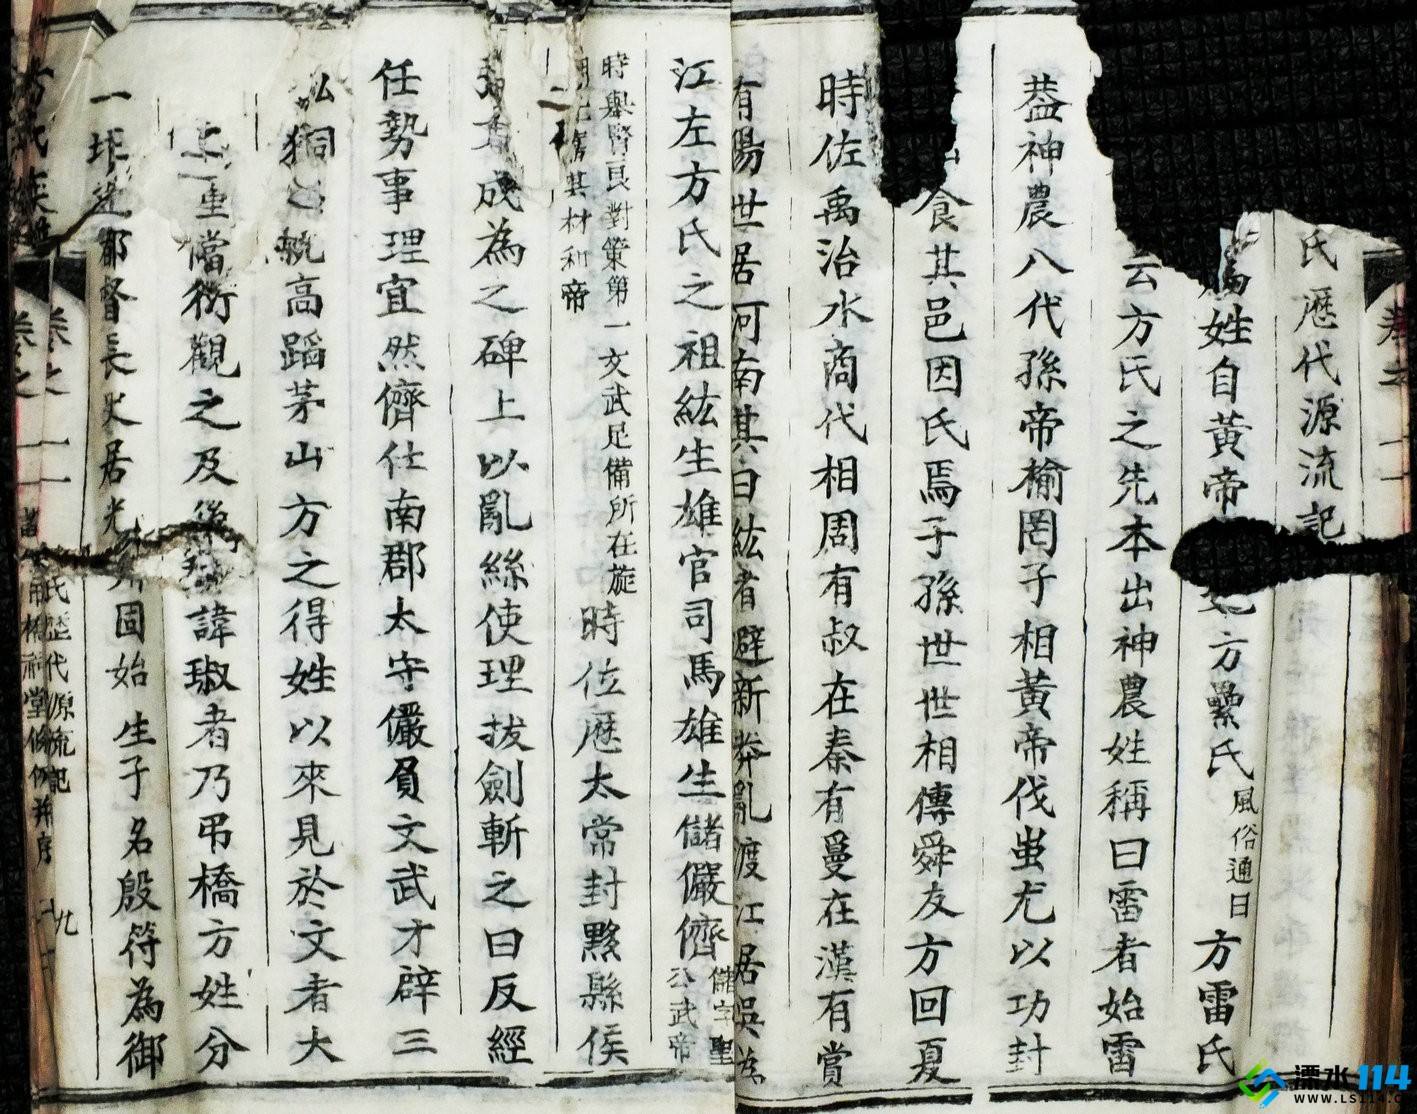 氏歷代源流記
爲姓自黃帝
方纍氏
風俗通曰
方雷氏
云方氏之先本出神農姓稱曰雷者始雷
葢神農八代孫帝榆罔子相黃帝伐蚩尤以功封
食其邑因氏焉子孫世世相傳舜友方回夏
時佐禹治水商代相周有叔在秦有曼在漢有賞
有陽世居河南其曰紘者避新莽亂渡江居吳爲
江左方氏之祖紘生雄官司馬雄生儲儼儕
儲字聖
公武帝
時舉賢良對策第一文武足備所在旋
其材和帝
時位歷太常封黟縣侯
成為之碑上以亂絲使理拔劍斬之曰反經
任勢事理宜然儕仕南郡太守儼負文武才辟三
高蹈茅山方之得姓以來見於文者大
觀之及後諱琡者乃弔橋方姓分
都督長史居光
固始生子名殷符為御
卷之一
氏歷代源流記
九
甬橋祠堂
并序
溧水114
www.LS114.c